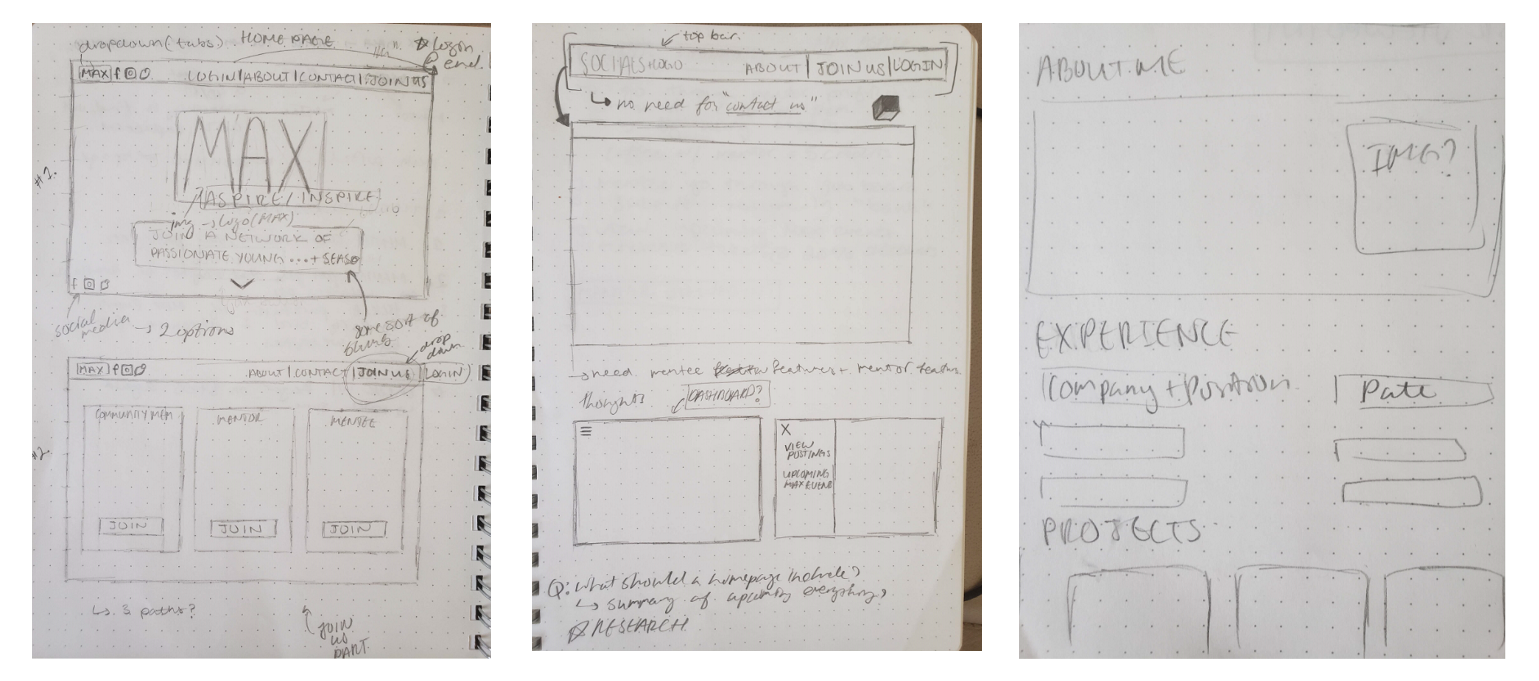 dropdown (tabs) HOME PAGE
login
@ end.
MAX f
LOGIN | ABOUT | CONTACT | JOIN US
#1.
MAX
ASPIRE / INSPIRE
img → logo (MAX)
JOIN A NETWORK OF
PASSIONATE YOUNG ... +
f
social
media → 2 options
some sort of
blurb
drop
down
MAX f
ABOUT | CONTACT | JOIN US | LOGIN
#2.
COMMUNITY MEM
MENTOR
MENTEE
JOIN
JOIN
JOIN
↳ 3 paths?
JOIN
US
PART.
top bar.
SOCIALS + LOGO
ABOUT | JOIN US | LOGIN
↳ no need for "contact us"
→ need mentee features + mentor features.
thoughts
DASHBOARD?
X
VIEW
POSTINGS
UPCOMING
MAX EVENTS
Q: what should a homepage include?
↳ summary of upcoming everything?
RESEARCH
ABOUT ME
IMG?
EXPERIENCE
Company + Position
Date
PROJECTS